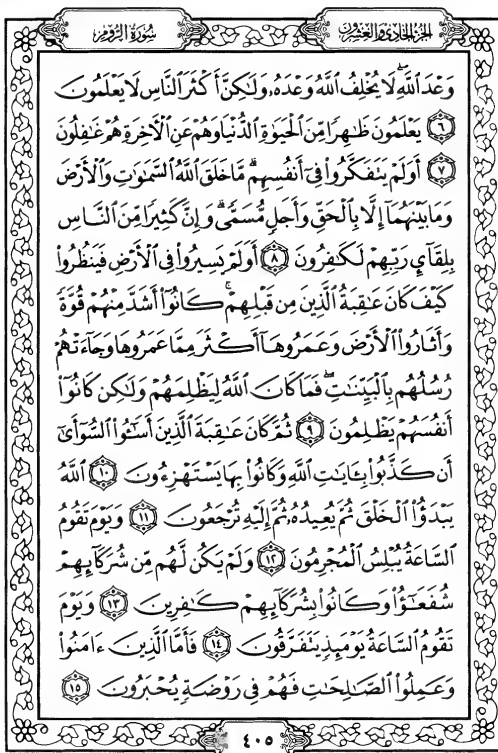 الجزء الحادي والعشرون سورة الروم
وَعْدَ ٱللَّهِۖ لَا يُخْلِفُ ٱللَّهُ وَعْدَهُۥ وَلَٰكِنَّ أَكْثَرَ ٱلنَّاسِ لَا يَعْلَمُونَ
٦ يَعْلَمُونَ ظَٰهِرًا مِّنَ ٱلْحَيَوٰةِ ٱلدُّنْيَا وَهُمْ عَنِ ٱلْءَاخِرَةِ هُمْ غَٰفِلُونَ
٧ أَوَلَمْ يَتَفَكَّرُوا۟ فِىٓ أَنفُسِهِمۗ مَّا خَلَقَ ٱللَّهُ ٱلسَّمَٰوَٰتِ وَٱلْأَرْضَ
وَمَا بَيْنَهُمَآ إِلَّا بِٱلْحَقِّ وَأَجَلٍ مُّسَمًّىۗ وَإِنَّ كَثِيرًا مِّنَ ٱلنَّاسِ
بِلِقَآئِ رَبِّهِمْ لَكَٰفِرُونَ ٨ أَوَلَمْ يَسِيرُوا۟ فِى ٱلْأَرْضِ فَيَنظُرُوا۟
كَيْفَ كَانَ عَٰقِبَةُ ٱلَّذِينَ مِن قَبْلِهِمْۚ كَانُوٓا۟ أَشَدَّ مِنْهُمْ قُوَّةً
وَأَثَارُوا۟ ٱلْأَرْضَ وَعَمَرُوهَآ أَكْثَرَ مِمَّا عَمَرُوهَا وَجَآءَتْهُمْ
رُسُلُهُم بِٱلْبَيِّنَٰتِۖ فَمَا كَانَ ٱللَّهُ لِيَظْلِمَهُمْ وَلَٰكِن كَانُوٓا۟
أَنفُسَهُمْ يَظْلِمُونَ ٩ ثُمَّ كَانَ عَٰقِبَةَ ٱلَّذِينَ أَسَٰٓـُٔوا۟ ٱلسُّوٓأَىٰٓ
أَن كَذَّبُوا۟ بِـَٔايَٰتِ ٱللَّهِ وَكَانُوا۟ بِهَا يَسْتَهْزِءُونَ ١٠ ٱللَّهُ
يَبْدَؤُا۟ ٱلْخَلْقَ ثُمَّ يُعِيدُهُۥ ثُمَّ إِلَيْهِ تُرْجَعُونَ ١١ وَيَوْمَ تَقُومُ
ٱلسَّاعَةُ يُبْلِسُ ٱلْمُجْرِمُونَ ١٢ وَلَمْ يَكُن لَّهُم مِّن شُرَكَآئِهِمْ
شُفَعَٰٓؤُا۟ وَكَانُوا۟ بِشُرَكَآئِهِمْ كَٰفِرِينَ ١٣ وَيَوْمَ
تَقُومُ ٱلسَّاعَةُ يَوْمَئِذٍ يَتَفَرَّقُونَ ١٤ فَأَمَّا ٱلَّذِينَ ءَامَنُوا۟
وَعَمِلُوا۟ ٱلصَّٰلِحَٰتِ فَهُمْ فِى رَوْضَةٍ يُحْبَرُونَ ١٥
٤٠٥